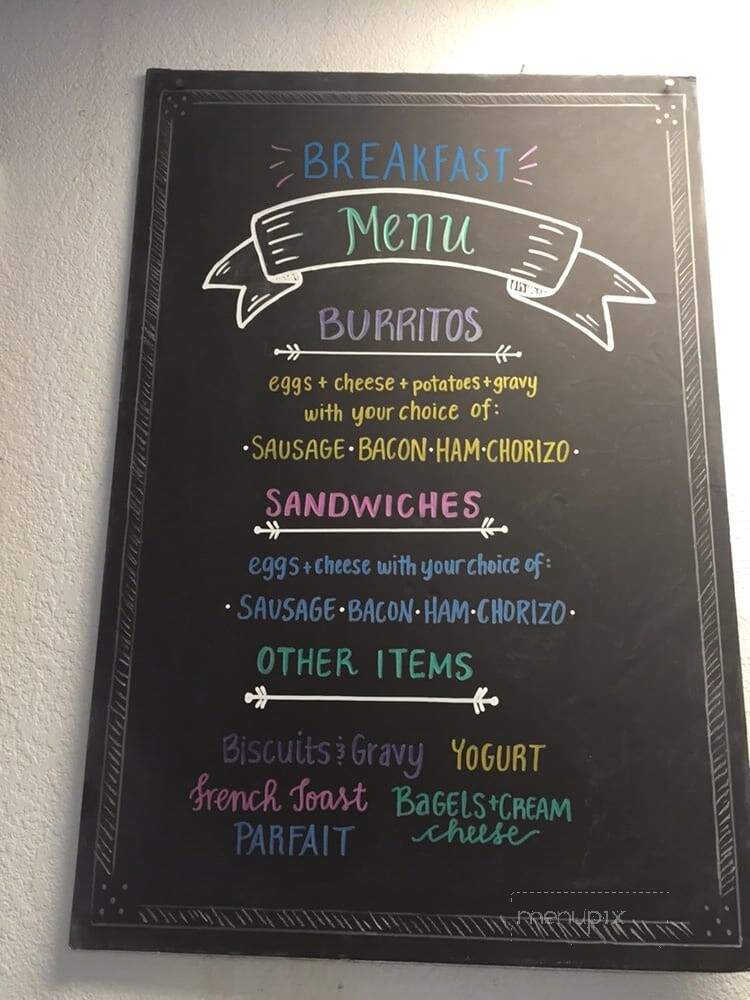 BREAKFAST
Menu
BURRITOS
eggs + cheese + potatoes + gravy
with your choice of:
· SAUSAGE · BACON · HAM · CHORIZO ·
SANDWICHES
eggs + cheese with your choice of:
· SAUSAGE · BACON · HAM · CHORIZO ·
OTHER ITEMS
Biscuits & Gravy YOGURT
French Toast BAGELS + CREAM
PARFAIT cheese
menupix